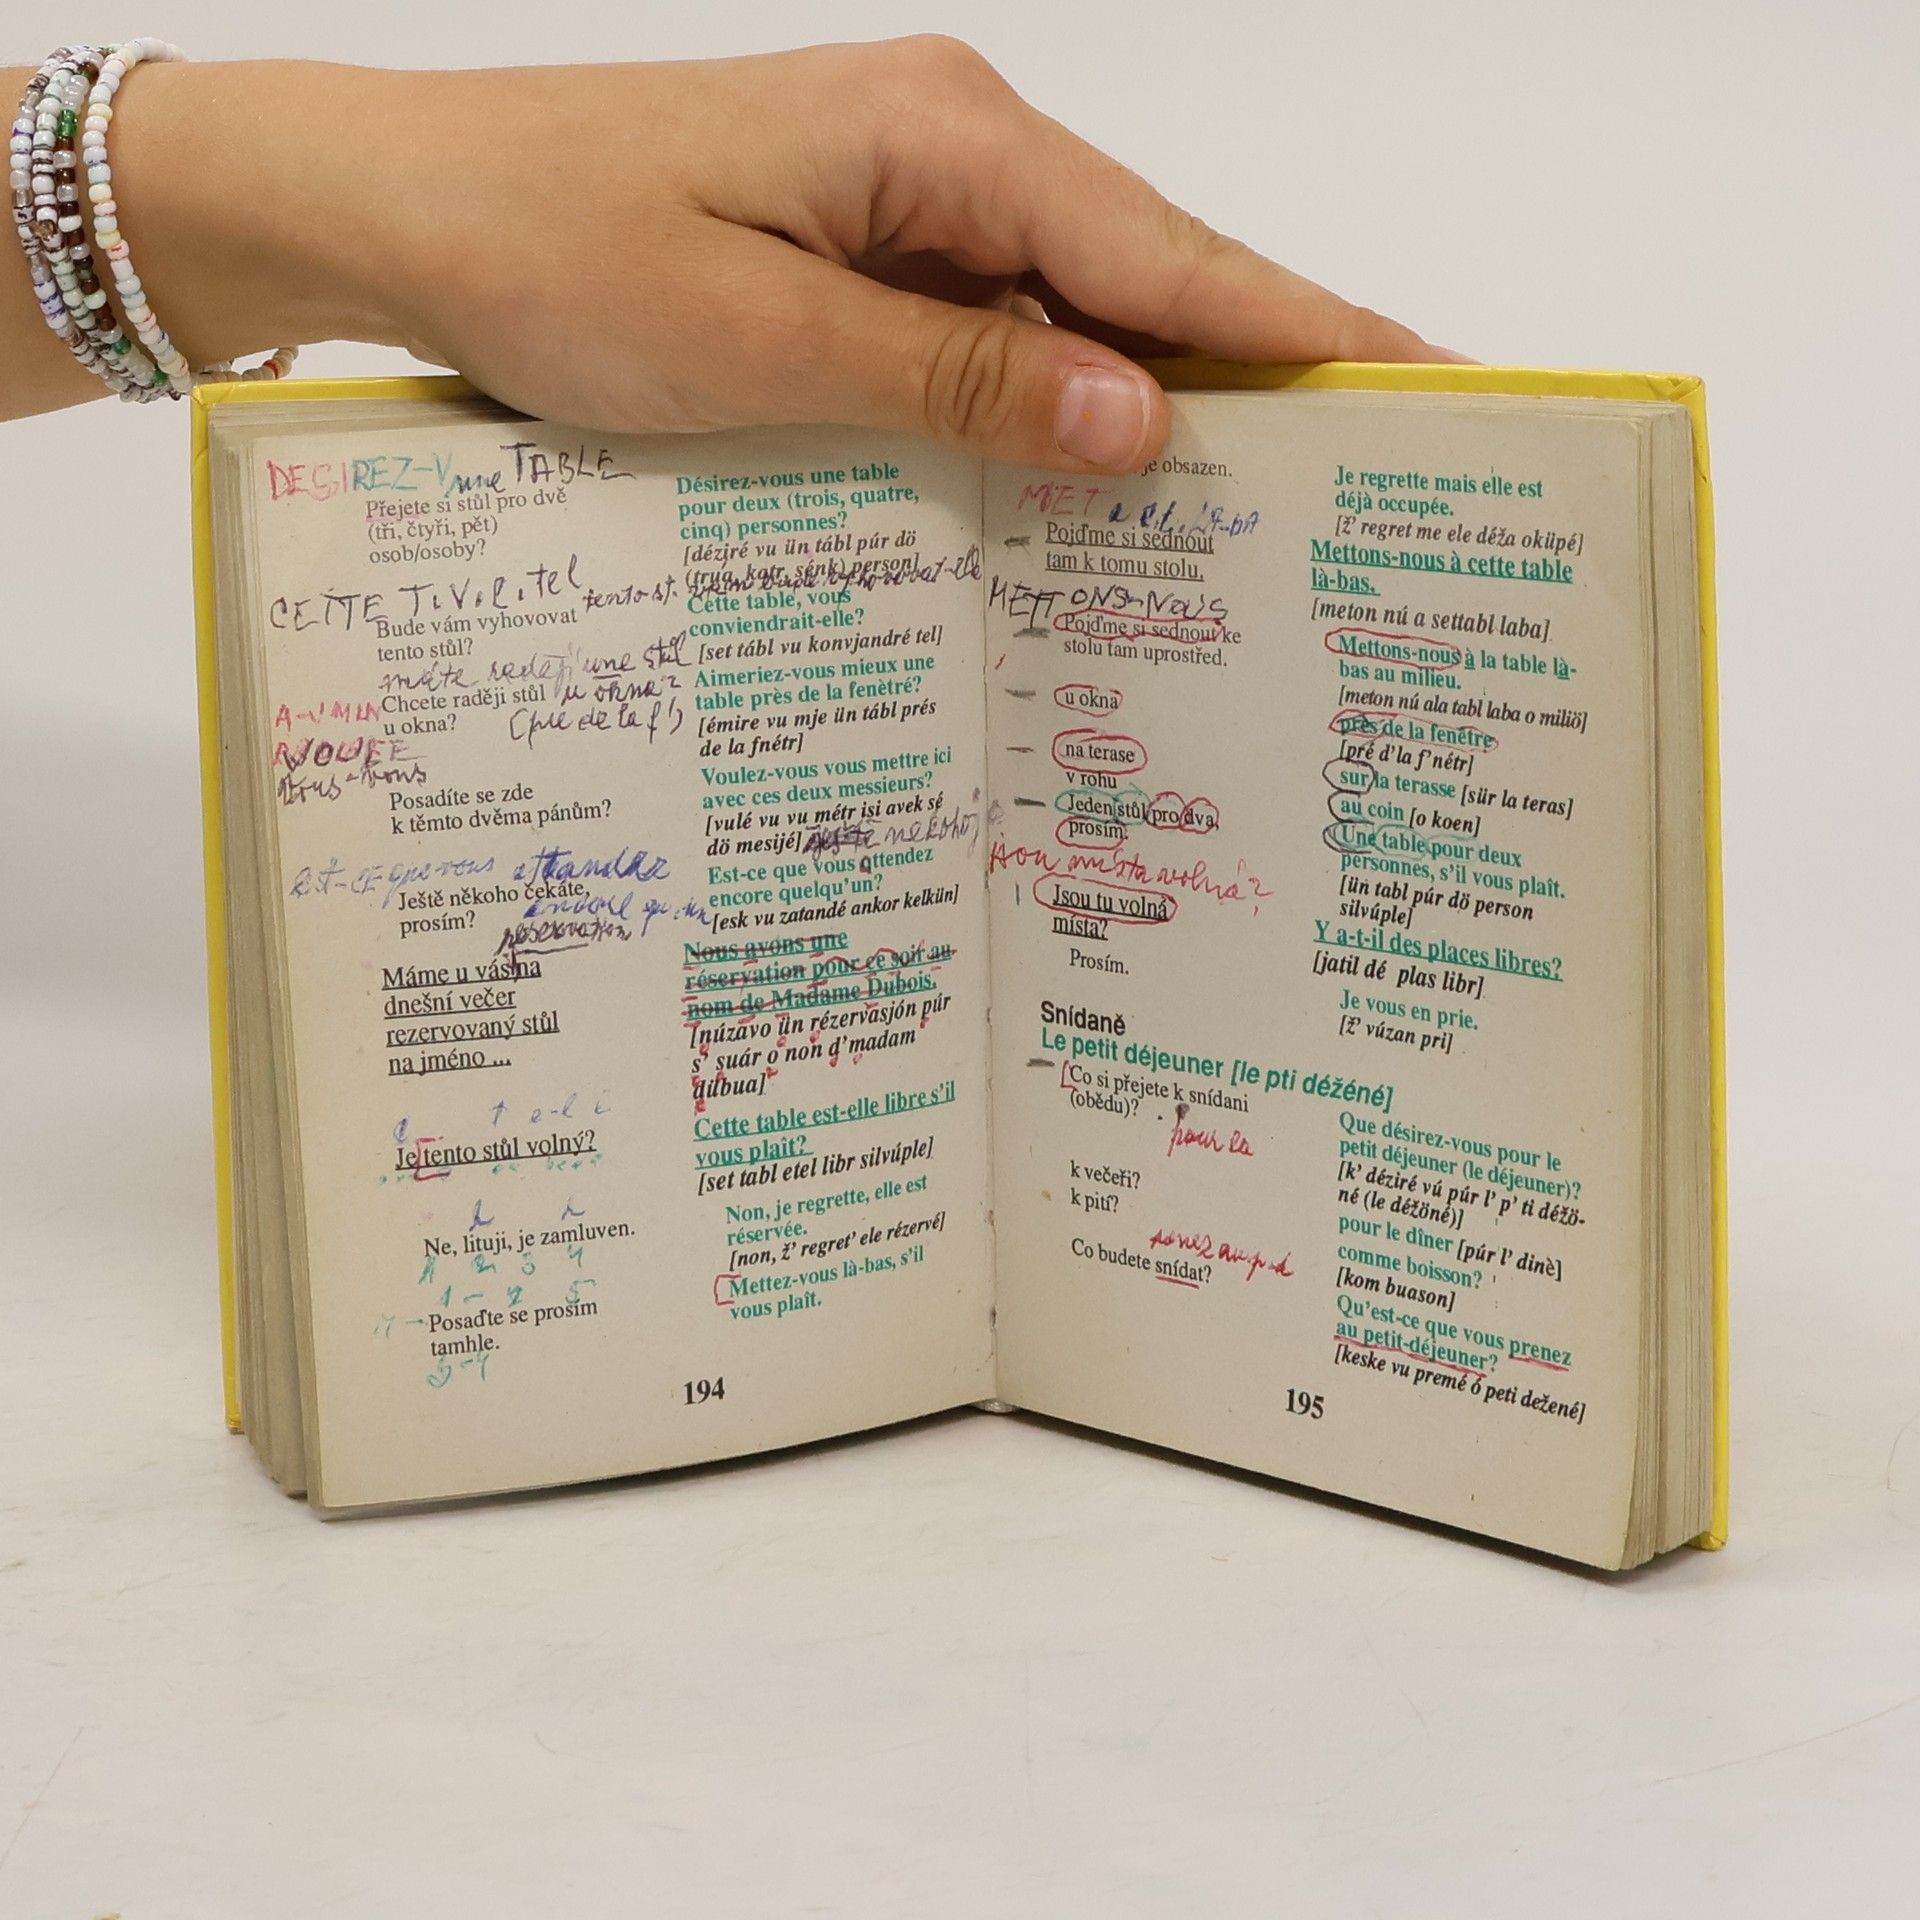 DESIREZ-V une TABLE
Přejete si stůl pro dvě
(tři, čtyři, pět)
osob/osoby?
CETTE T.V.l.tel
Bude vám vyhovovat
tento stůl?
máte raději une stůl
Chcete raději stůl u okna?
u okna?
(pre de la f')
A-V MIN
VOULEE
vous
Posadíte se zde
k těmto dvěma pánům?
EST-CE que vous attandez
Ještě někoho čekáte,
prosím?
reservation
Máme u vás na
dnešní večer
rezervovaný stůl
na jméno ...
Je tento stůl volný?
Ne, lituji, je zamluven.
1 2 3 4
Posaďte se prosím
tamhle.
3-4
Désirez-vous une table
pour deux (trois, quatre,
cinq) personnes?
[déziré vu ün tábl púr dö
(truá, katr, sénk) person]
Cette table, vous
conviendrait-elle?
[set tábl vu konvjandré tel]
Aimeriez-vous mieux une
table près de la fenètré?
[émire vu mje ün tábl prés
de la fnétr]
Voulez-vous vous mettre ici
avec ces deux messieurs?
[vulé vu vu métr isi avek sé
dö mesijé] ještě někoho
Est-ce que vous attendez
encore quelqu'un?
[esk vu zatandé ankor kelkün]
Nous avons une
réservation pour ce soir au
nom de Madame Dubois.
[núzavo ün rézervasjón púr
s' suár o non d'madam
dübua]
Cette table est-elle libre s'il
vous plaît?
[set tabl etel libr silvúple]
Non, je regrette, elle est
réservée.
[non, ž' regret' ele rézervé]
Mettez-vous là-bas, s'il
vous plaît.
194
je obsazen.
MET a c.t. LA-BA
Pojďme si sednout
tam k tomu stolu.
METTONS-NOUS
Pojďme si sednout ke
stolu tam uprostřed.
u okna
na terase
v rohu
Jeden stůl pro dva,
prosím.
Jsou místa volná?
Jsou tu volná
místa?
Prosím.
Snídaně
Le petit déjeuner [le pti déžéné]
Co si přejete k snídani
(obědu)?
pour la
k večeři?
k pití?
Co budete snídat?
Je regrette mais elle est
déjà occupée.
[ž' regret me ele déža oküpé]
Mettons-nous à cette table
là-bas.
[meton nú a settabl laba]
Mettons-nous à la table là-
bas au milieu.
[meton nú ala tabl laba o miliö]
près de la fenêtre
[pré d'la f'nétr]
sur la terasse [sür la teras]
au coin [o koen]
Une table pour deux
personnes, s'il vous plaît.
[ün tabl púr dö person
silvúple]
Y a-t-il des places libres?
[jatil dé plas libr]
Je vous en prie.
[ž' vúzan pri]
Que désirez-vous pour le
petit déjeuner (le déjeuner)?
[k' déziré vú púr l' p' ti déžö-
né (le déžöné)]
pour le dîner [púr l' dinè]
comme boisson?
[kom buason]
Qu'est-ce que vous prenez
au petit-déjeuner?
[keske vu premé ó peti dežené]
195